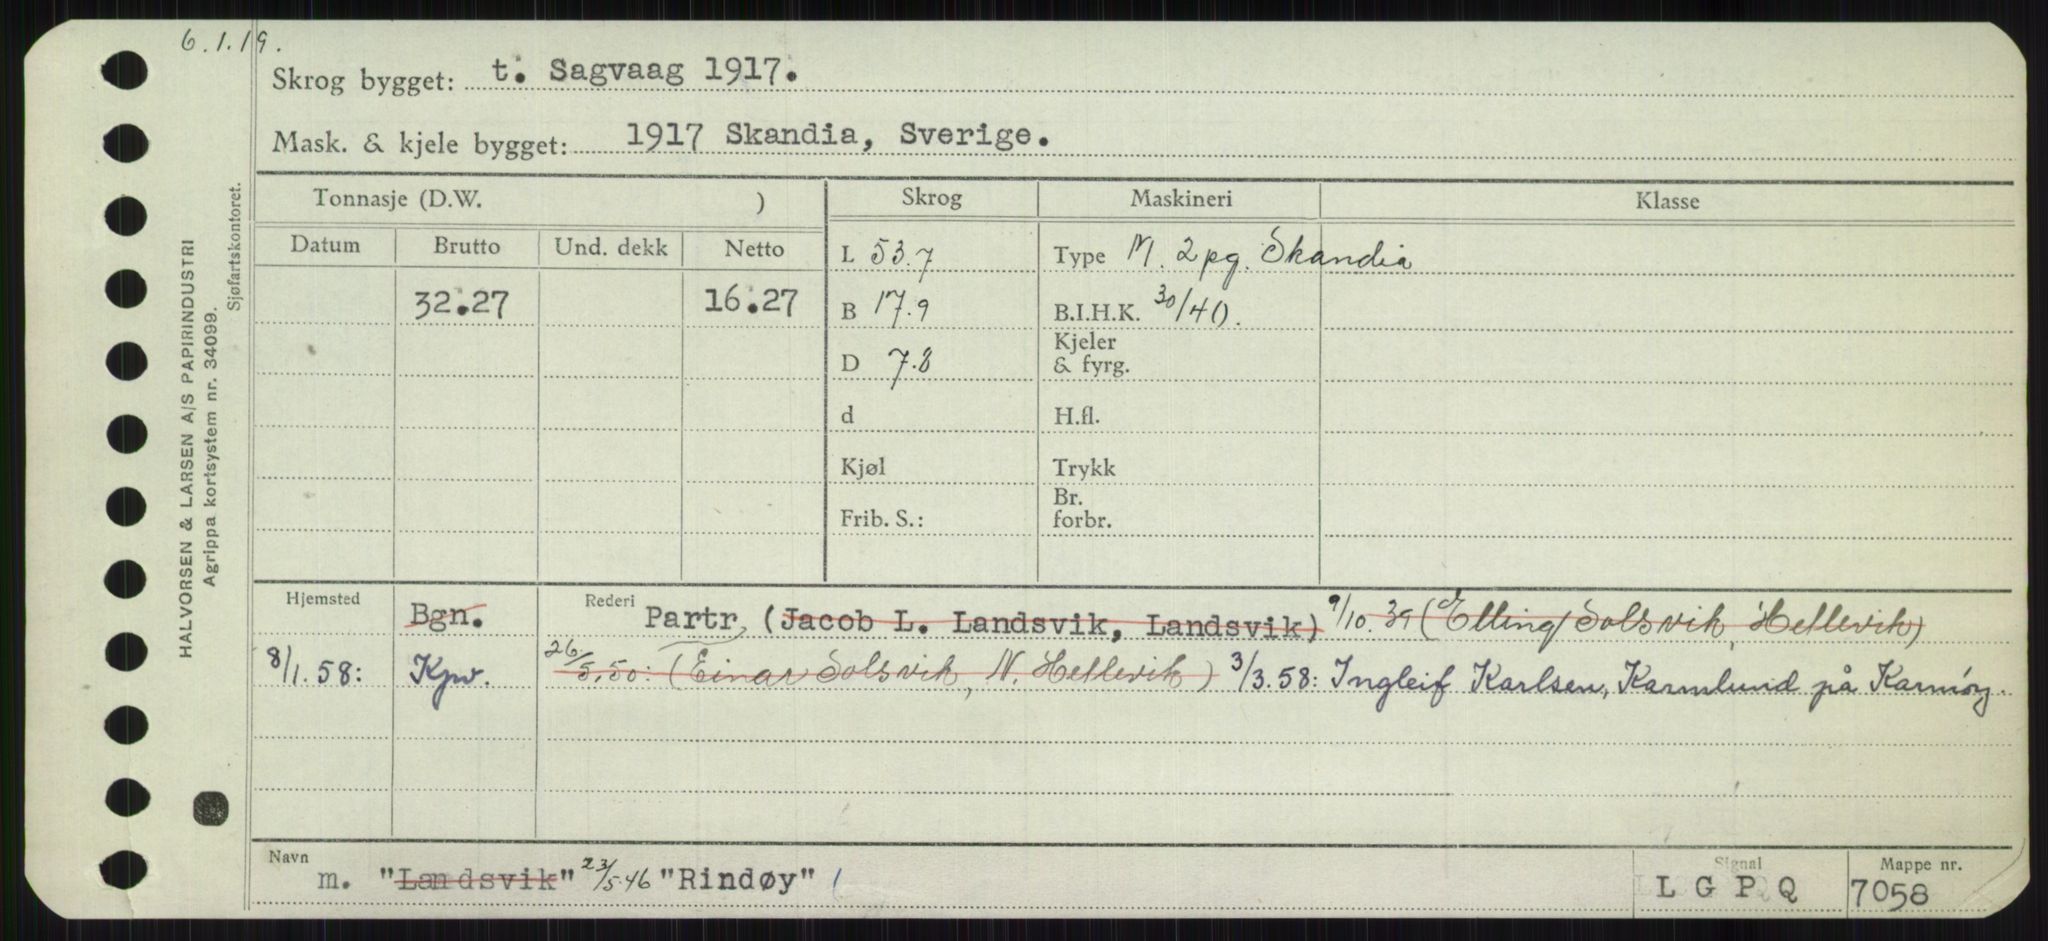 6.1.19.
Skrog bygget: t. Sagvaag 1917.
Mask. & kjele bygget: 1917 Skandia, Sverige.
HALVORSEN & LARSEN A/S PAPIRINDUSTRI
Agrippa kortsystem nr. 34099.
Sjøfartskontoret.
Tonnasje (D.W. ) Skrog Maskineri Klasse
Datum Brutto Und. dekk Netto
L 53.7 Type M. 2pg. Skandia
32.27 16.27 B 17.9 B.I.H.K. 30/40.
D 7.8 Kjeler
& fyrg.
d H.fl.
Kjøl Trykk
Frib. S.: Br.
forbr.
Hjemsted Bgn. Rederi Partr, (Jacob L. Landsvik, Landsvik) 9/10.39 (Elling Solsvik, Hellevik)
8/1.58: Kpv. 26/5.50: (Einar Solsvik, N. Hellevik) 3/3.58: Ingleif Karlsen, Karmlund på Karmøy.
Navn m. "Landsvik" 23/5.46 "Rindøy" (
Signal L G P Q
Mappe nr. 7058